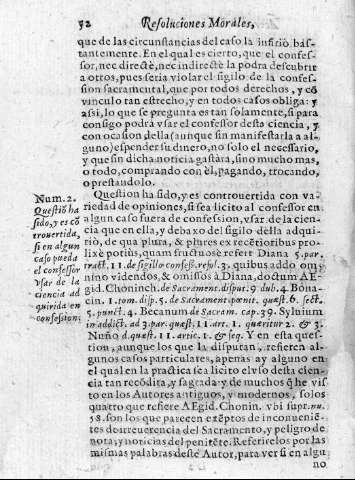 52 Resoluciones Morales,
que de las circunstancias del caso la infirio bas-
tantemente. En el qual es cierto, que el confes-
sor, nec directè, nec indirectè la podra descubrir
a otros, pues seria violar el sigilo de la confes-
sion sacramental, que por todos derechos, y cō
vinculo tan estrecho, y en todos casos obliga: y
assi, lo que se pregunta es tan solamente, si para
consigo podrà vsar el confessor desta ciencia, y
con ocasion della (aunque sin manifestarla a al-
guno) espender su dinero, no solo el necessario,
y que sin dicha noticia gastàra, sino mucho mas,
o todo, comprando con èl, pagando, trocando,
o prestandolo.
Num. 2.
Questiō ha
sido, y es cō
trouertida,
si en algun
caso pueda
el confessor
vsar de la
ciencia ad
quirida en
confession.
Question ha sido, y es controuertida con va-
riedad de opiniones, si sea licito al confessor en
algun caso fuera de confession, vsar de la cien-
cia que en ella, y debaxo del sigilo della adqui-
riò, de qua plura, & plures ex recētioribus pro-
lixè potiùs, quam fructuosè refert Diana 5. par.
tract. 11. de sigillo confess. resol. 3. quibus addo om-
nino videndos, & omissos à Diana, doctum AE-
gid. Choninch. de Sacrament. disput. 9 dub. 4. Bona-
cin. 1. tom. disp. 5. de Sacrament. pœnit. quæst. 6. sect.
5. punct. 4. Becanum de Sacram. cap. 39. Syluium
in addict. ad 3. par. quæst. 11. art. 1. quæritur 2. & 3.
Nuño d. quæst. 11. artic. 1. & seq. Y en esta ques-
tion, aunque los que la disputan, refieren al-
gunos casos particulares, apenas ay alguno en
el qual en la practica sea licito el vso desta cien-
cia tan recōdita, y sagrada: y de muchos q̄ he vis-
to en los Autores antiguos, y modernos, solos
quatro que refiere AEgid. Chonin. vbi supr. nu.
58. son los que parecen exēptos de inconuenie-
tes de irreuerencia del Sacramento, y peligro de
nota, y noticias del penitēte. Referirelos por las
mismas palabras deste Autor, para ver si en algu
no